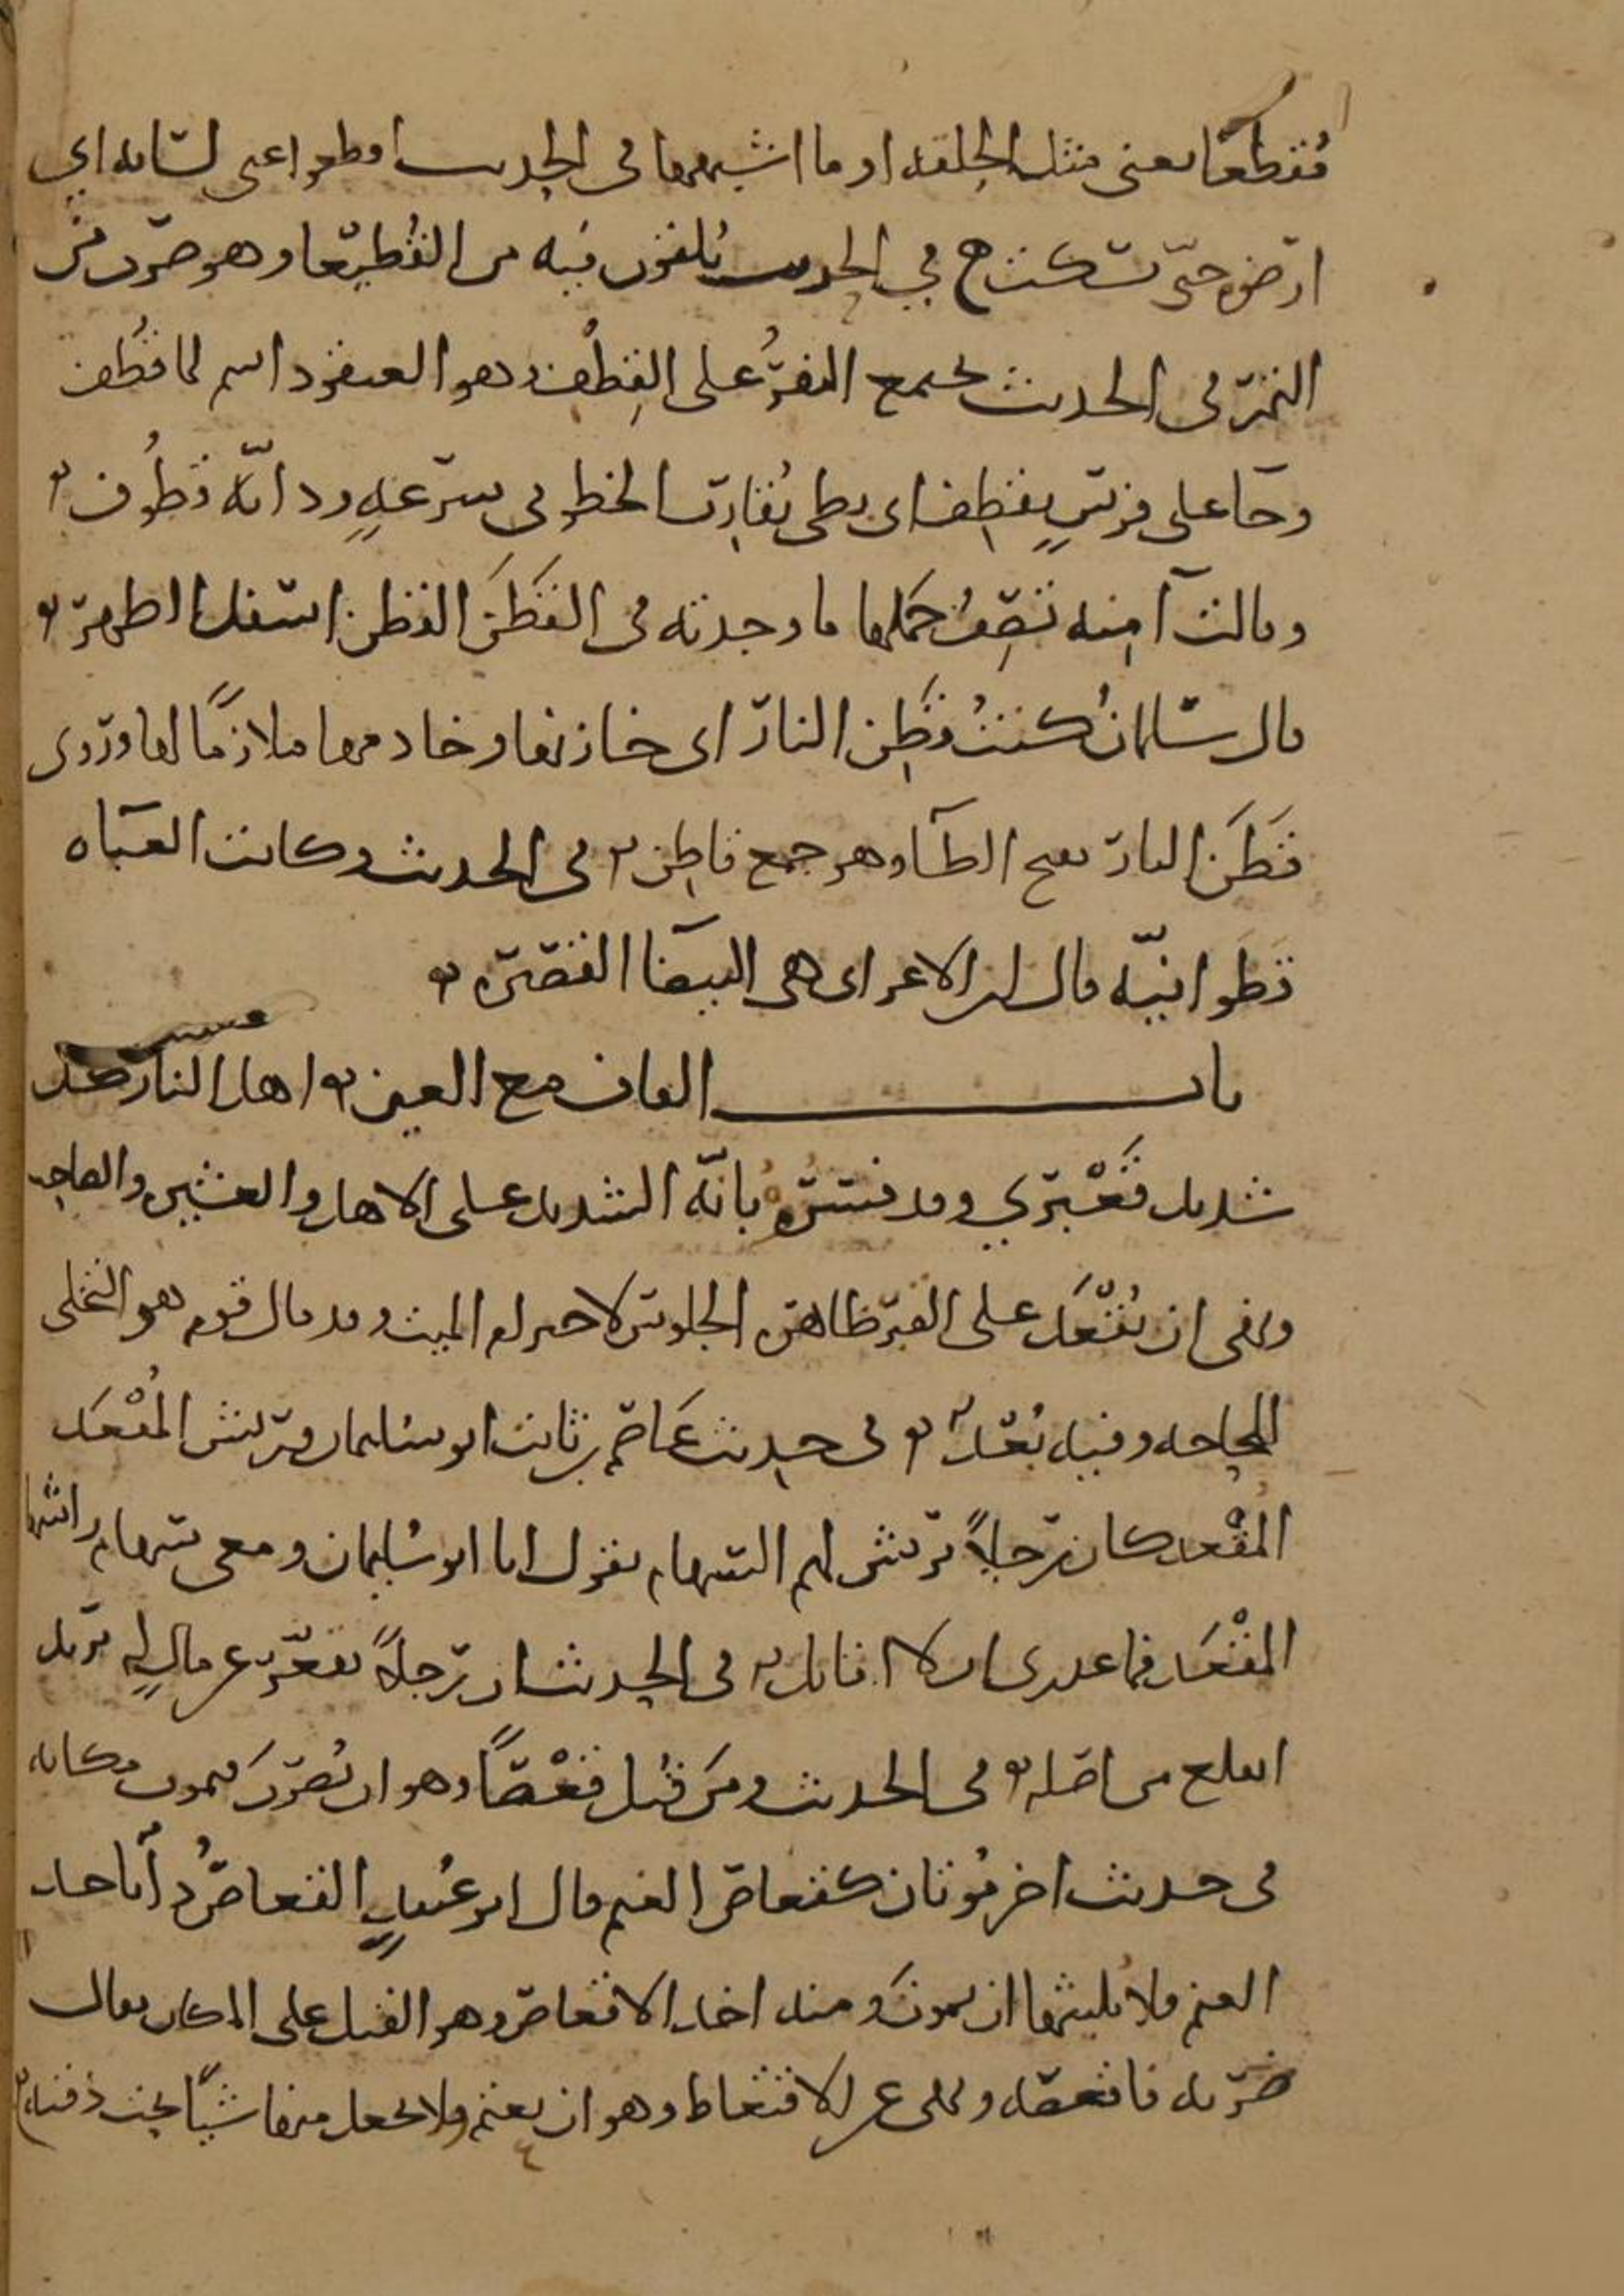 مُقطعًا يعنى مثل الحلقه او ما اشبهها فى الحديث اقطعوا عنى لسانه اي
ارضوه حتّى يسكت ح في الحديث يُلقون فيه من القُطيعا وهو ضرب من
التمر فى الحديث يجتمع النفرُ على القِطف وهو العنقود اسم لما قُطف
وجآ على فرسٍ يقطِف اى بطى يُقارب الخطو فى سرعهٍ ودابّه قطُوف
وقالت آمنه تصِفُ حَملها ما وجدته فى القَطَن القطن اسفل الظهر
قال سلمانُ كنتُ قَطِن النار اى خازنها وخادمها ملازمًا لها وروى
قَطَن النار بفتح الطآ وهو جمع قاطِن فى الحديث وكانت العباه
قَطَوانيّه قال ابن الاعرابى هى البيضا القصيره
باب القاف مع العين اهل النار كل
شديد قَعْبَري وقد فسّره بانّه الشديد على الاهل والعشير والصاحب
ونهى ان يُقْعَد على القبر ظاهره الجلوس لاحترام الميت وقد قال قوم هو التخلى
للحاجه وفيه بُعْد فى حديث عَاصم بن ثابت ابو سليمان وريش المُقْعَد
المُقْعد كان رجلاً يريش لهم السهام يقول انا ابو سُليمان ومعى سهام راشها
المُقْعَد فما عذرى ان لا اقاتل فى الحديث ان رجلاً تقعّر عن مالٍ له يريد
انقلع من اصله فى الحديث ومَن قُتِل قَعْصًا وهو ان يُضرَبَ فيموت مكانه
فى حديث اخر مُوتان كقعاص الغنم قال ابو عُبيدٍ القعاصُ دآ ياخذ
الغنم فلا يُلبثها ان يموتَ ومنه اخذ الاقعاص وهو القتل على المكان يقال
ضربه فاقعصه ونهى عن الاقتعاط وهو ان يعتم ولا يجعل منها شيًا تحت ذقنه